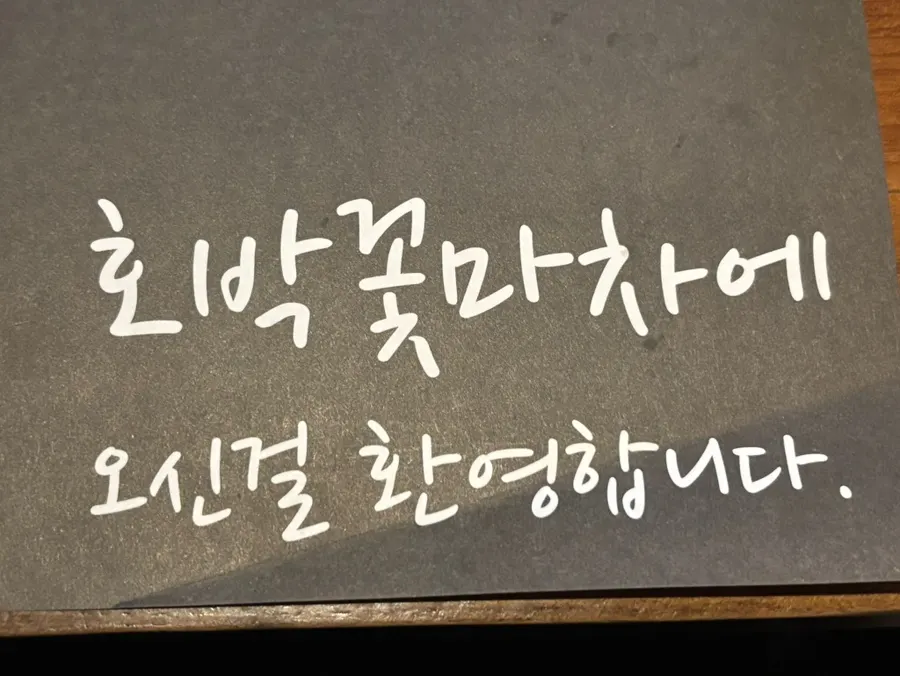 호박꽃마차에
오신걸 환영합니다.